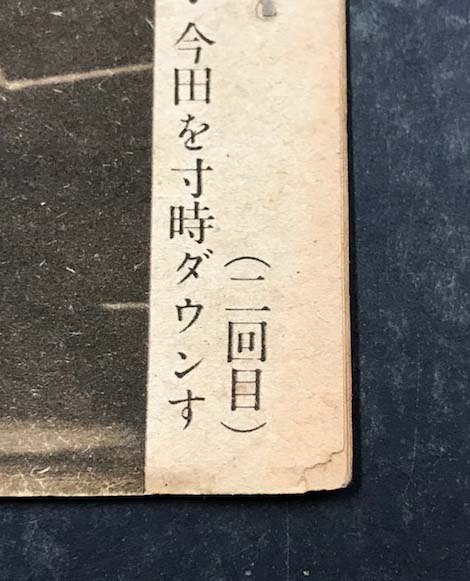 ・今田を寸時ダウンす
（二回目）